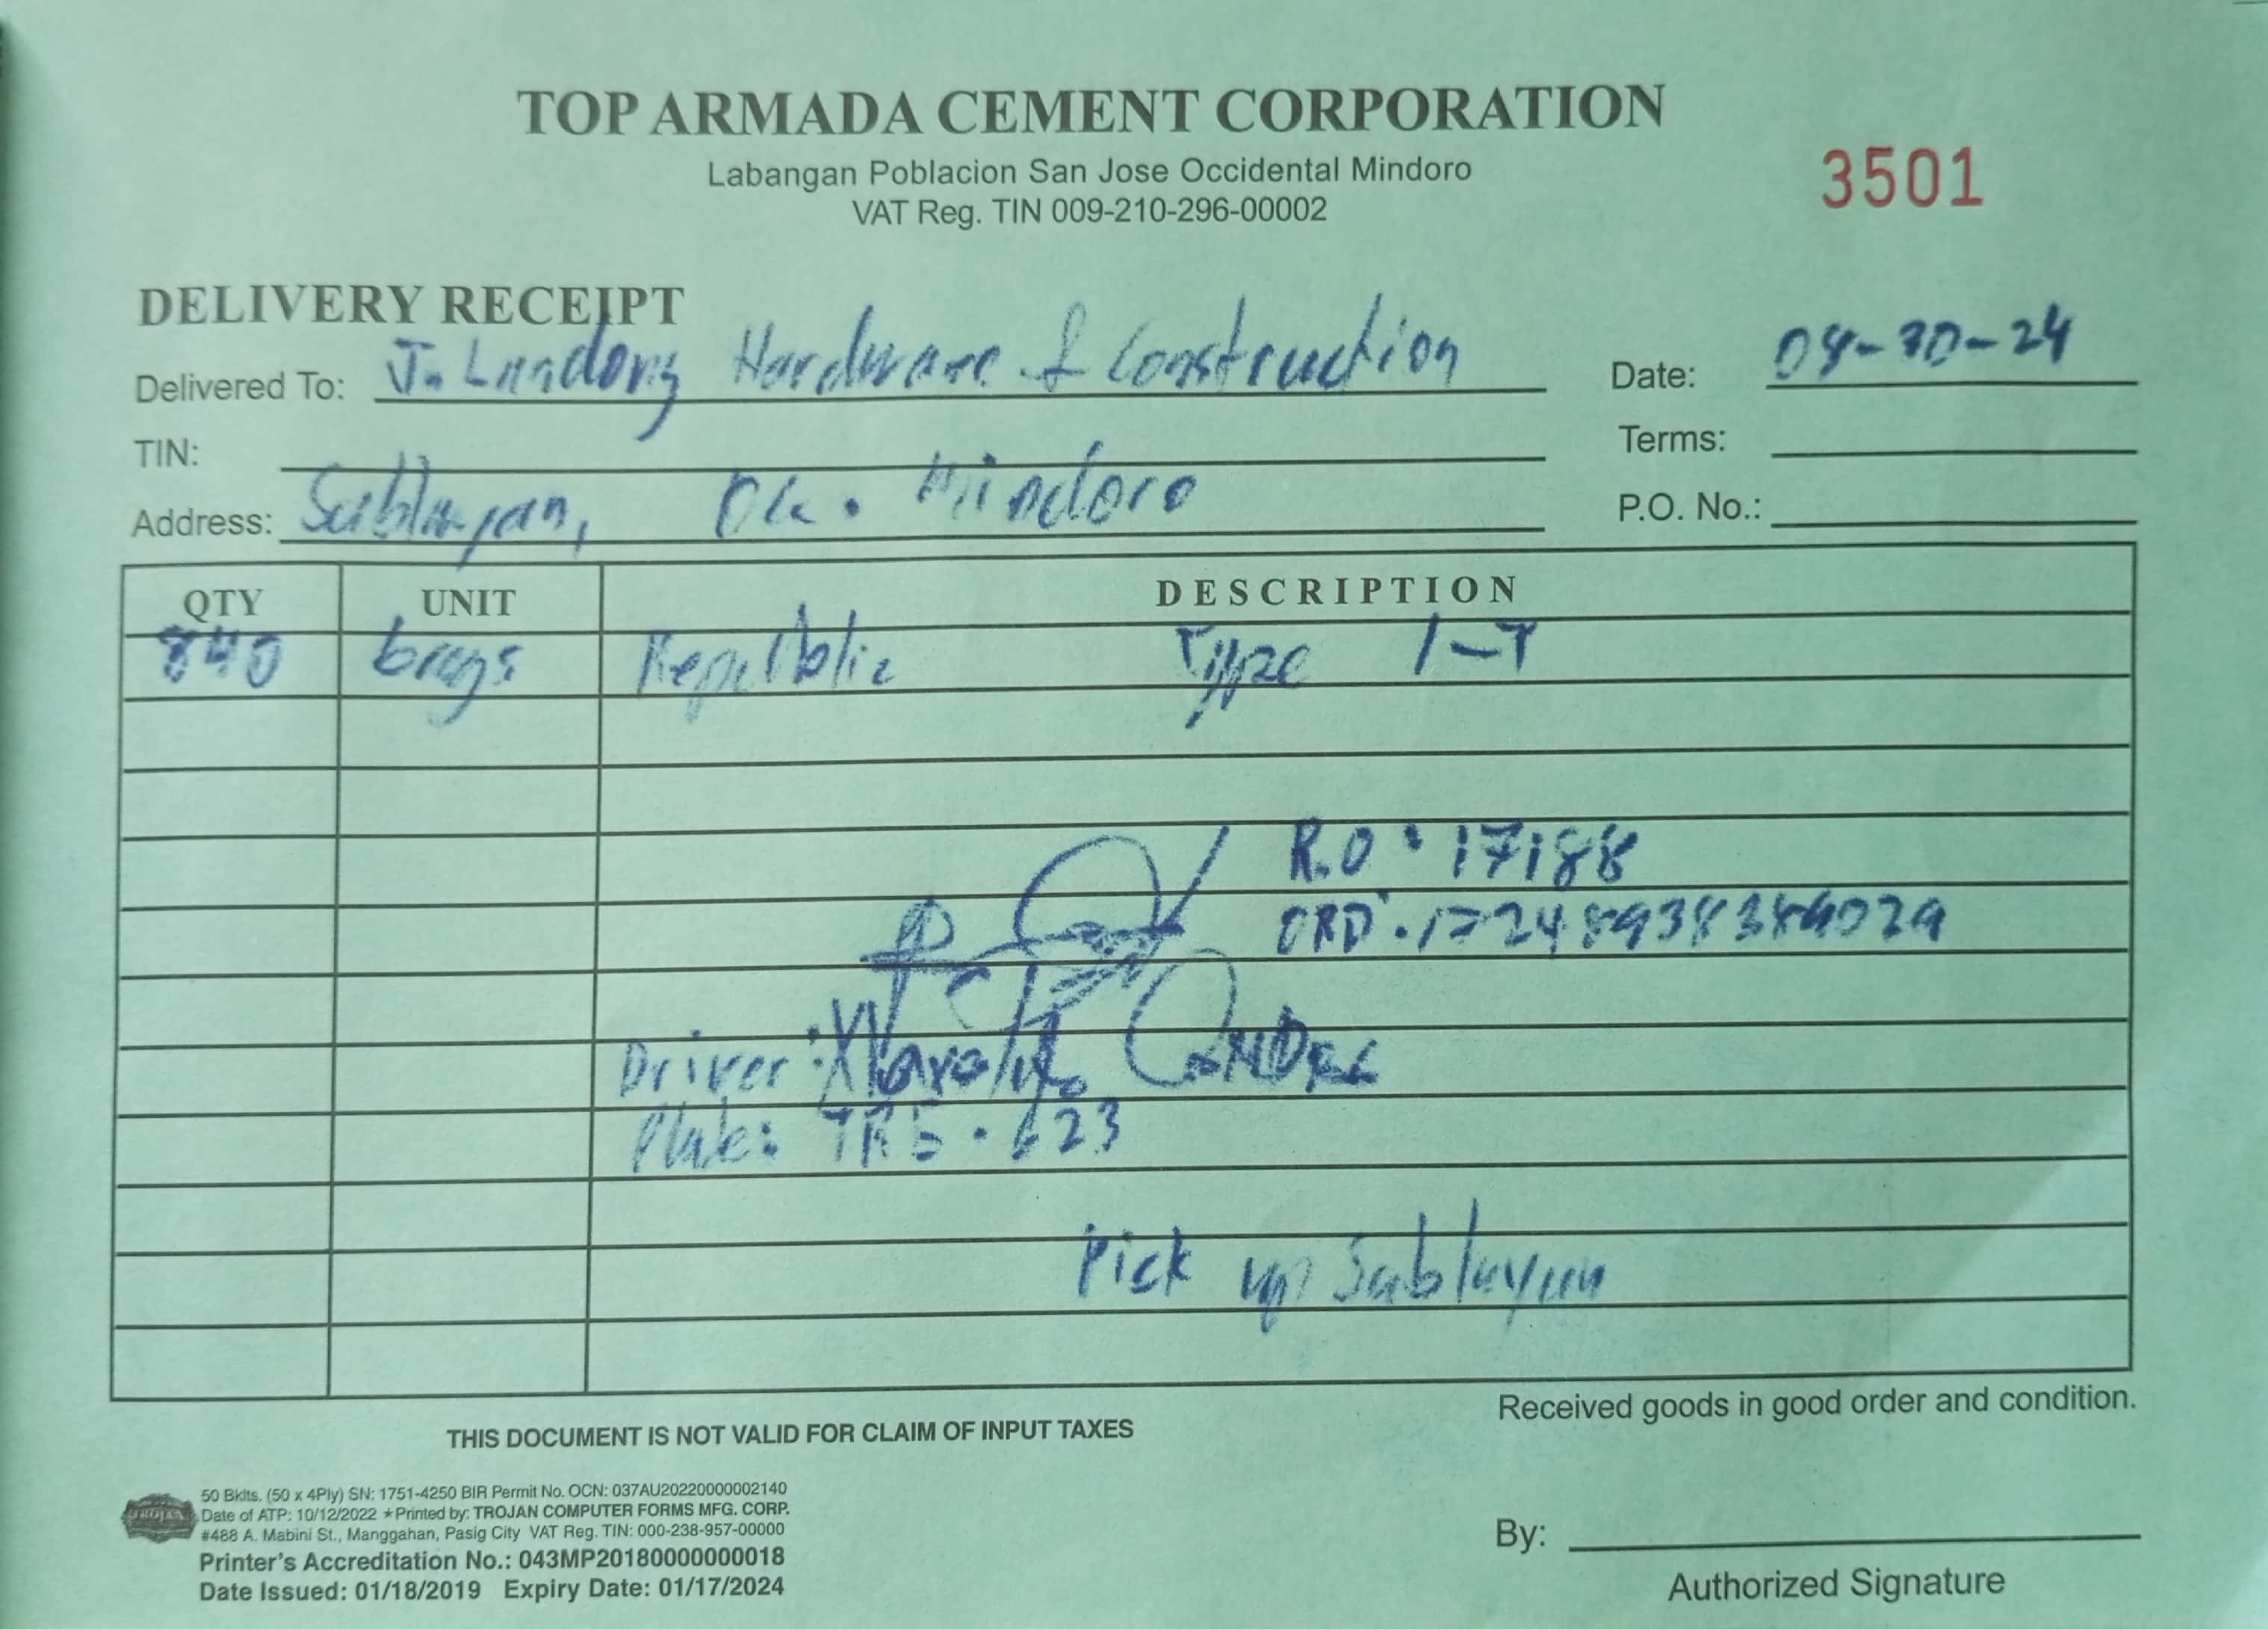 TOP ARMADA CEMENT CORPORATION
Labangan Poblacion San Jose Occidental Mindoro
VAT Reg. TIN 009-210-296-00002
3501
DELIVERY RECEIPT
Delivered To: J. Landong Hardware & Construction
Date: 08-30-24
TIN:
Terms:
Address: Sablayan, Occ. Mindoro
P.O. No.:
QTY UNIT DESCRIPTION
840 bags Republic Type 1-T
R.O : 17188
ORD . 17248938384029
Driver :
Plate: TRE . 623
Pick up Sablayan
Received goods in good order and condition.
THIS DOCUMENT IS NOT VALID FOR CLAIM OF INPUT TAXES
TROJAN
50 Bklts. (50 x 4Ply) SN: 1751-4250 BIR Permit No. OCN: 037AU20220000002140
Date of ATP: 10/12/2022 ★Printed by: TROJAN COMPUTER FORMS MFG. CORP.
#488 A. Mabini St., Manggahan, Pasig City VAT Reg. TIN: 000-238-957-00000
Printer's Accreditation No.: 043MP20180000000018
Date Issued: 01/18/2019 Expiry Date: 01/17/2024
By:
Authorized Signature